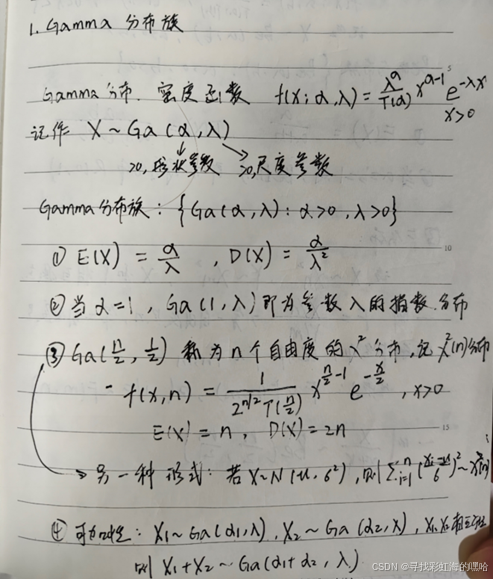 1. Gamma 分布族
Gamma 分布. 密度函数 f(x; α, λ) = λ^α/Γ(α) x^(α-1) e^(-λx) x>0
记作 X ~ Ga(α, λ)
>0,形状参数 >0,尺度参数
Gamma分布族: {Ga(α, λ): α>0, λ>0}
① E(X) = α/λ , D(X) = α/λ²
② 当 α=1, Ga(1, λ) 即为参数λ的指数分布
③ Ga(n/2, 1/2) 称为n个自由度的χ²分布,记χ²(n)分布
f(x,n) = 1/(2^(n/2) Γ(n/2)) x^(n/2-1) e^(-x/2) , x>0
E(X) = n, D(X) = 2n
另一种形式: 若 X~N(μ, σ²), 则 Σ_(i=1)^n ((Xi-μ)/σ)² ~ χ²(n)
④ 可加性: X₁ ~ Ga(α₁, λ), X₂ ~ Ga(α₂, λ), X₁, X₂ 相互独立
则 X₁+X₂ ~ Ga(α₁+α₂, λ)
5
10
15
CSDN @寻找彩虹海的嘿哈